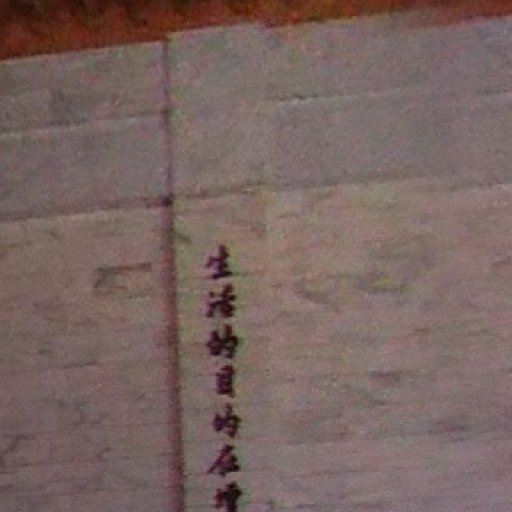 生活的目的在增